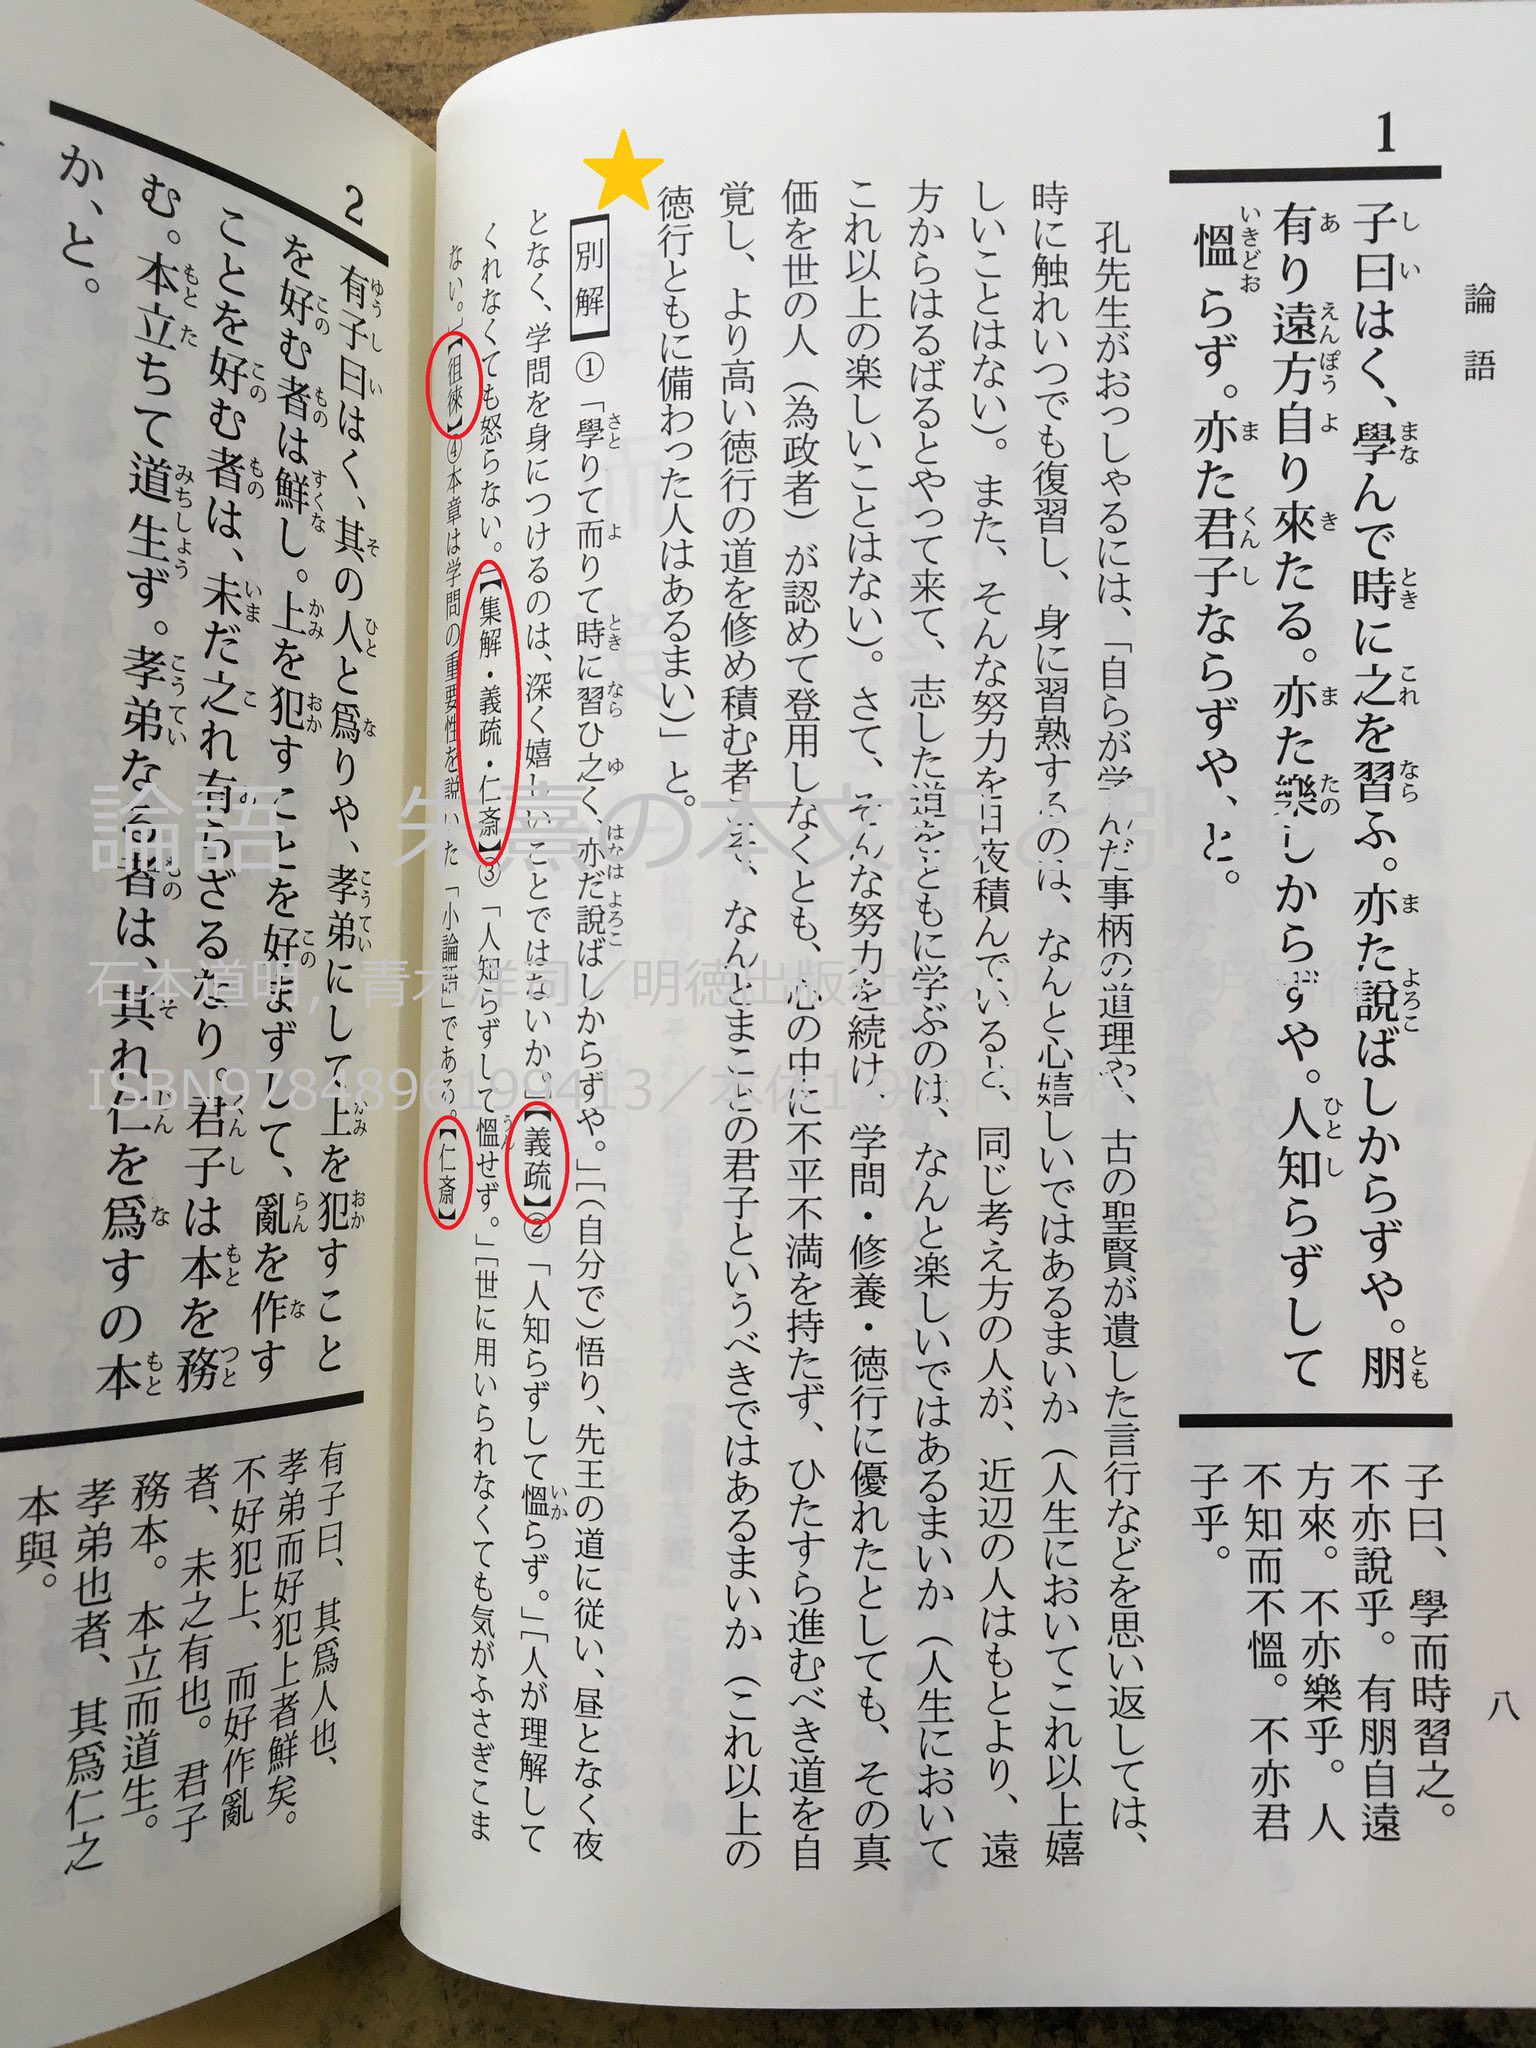 論語
八
1
子曰はく、學んで時に之を習ふ。亦た説ばしからずや。朋
有り遠方自り來たる。亦た樂しからずや。人知らずして
慍らず。亦た君子ならずや、と。
子曰、學而時習之。
不亦說乎。有朋自遠
方來。不亦樂乎。人
不知而不慍。不亦君
子乎。
孔先生がおっしゃるには、「自らが学んだ事柄の道理や、古の聖賢が遺した言行などを思い返しては、
時に触れいつでも復習し、身に習熟するのは、なんと心嬉しいではあるまいか（人生においてこれ以上嬉
しいことはない）。また、そんな努力を日夜積んでいると、同じ考え方の人が、近辺の人はもとより、遠
方からはるばるとやって来て、志した道をともに学ぶのは、なんと楽しいではあるまいか（人生において
これ以上の楽しいことはない）。さて、そんな努力を続け、学問・修養・徳行に優れたとしても、その真
価を世の人（為政者）が認めて登用しなくとも、心の中に不平不満を持たず、ひたすら進むべき道を自
覚し、より高い徳行の道を修め積む者こそ、なんとまことの君子というべきではあるまいか（これ以上の
徳行ともに備わった人はあるまい）」と。
別解 ①「學りて而りて時に習ひ之く、亦だ説ばしからずや。」「（自分で）悟り、先王の道に従い、昼となく夜
となく、学問を身につけるのは、深く嬉しいことではないか。」【義疏】②「人知らずして慍らず。」「人が理解して
くれなくても怒らない。」【集解・義疏・仁斎】③「人知らずして慍せず。」「世に用いられなくても気がふさぎこま
ない。」【徂徠】④本章は学問の重要性を説いた「小論語」である。【仁斎】
2
有子曰はく、其の人と爲りや、孝弟にして、上を犯すこと
を好む者は鮮し。上を犯すことを好まずして、亂を作す
ことを好む者は、未だ之れ有らざるなり。君子は本を務
む。本立ちて道生ず。孝弟なる者は、其れ仁を爲すの本
か、と。
有子曰、其爲人也、
孝弟而好犯上者鮮矣。
不好犯上、而好作亂
者、未之有也。君子
務本。本立而道生。
孝弟也者、其爲仁之
本與。
論語 朱熹の本文訳と別
石本道明，青木洋司／明徳出版社
ISBN9784896199413／本体1